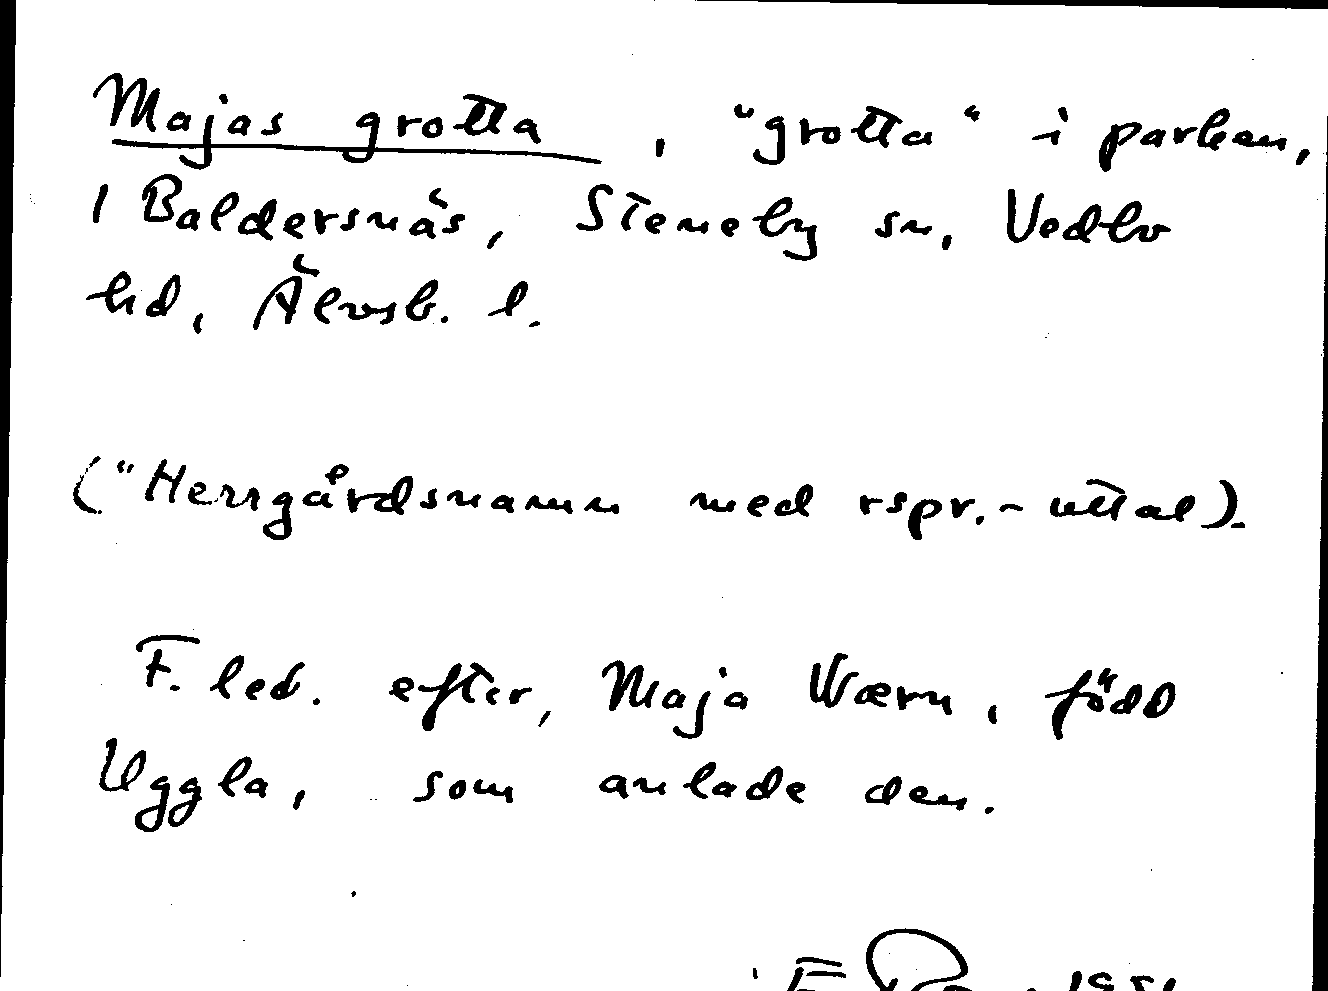 Majas grotta, "grotta" i parken,
1 Baldersnäs, Steneby sn, Vedbo
hd, Älvsb. l.
("Herrgårdsnamn med rspr.-uttal).
F. led. efter, Maja Wærn, född
Uggla, som anlade den.